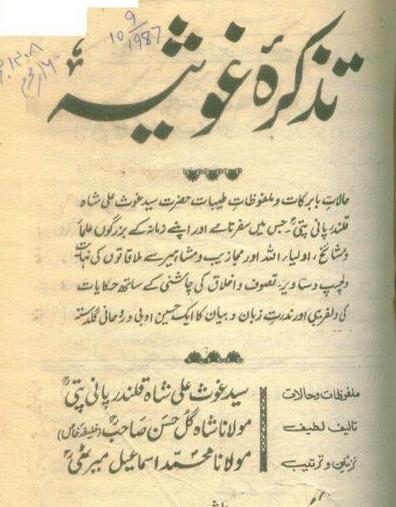 10 9/1987
تذکرۂ غوثیہ
حالاتِ بابرکات و ملفوظاتِ طیبات حضرت سید غوث علی شاہ
قلندر پانی پتیؒ۔ جس میں سفرنامے اور اپنے زمانہ کے بزرگوں علماء
و مشائخ، اولیاء اللہ اور مجاذیب و مشاہیر سے ملاقاتوں کی نہایت
دلچسپ دستاویز۔ تصوف و اخلاق کی چاشنی کے ساتھ حکایات
کی دلفریبی اور ندرتِ زبان و بیان کا ایک حسین ادبی و روحانی گلدستہ
ملفوظات و حالات سید غوث علی شاہ قلندر پانی پتیؒ
تالیف لطیف مولانا شاہ گل حسن صاحبؒ (خلیفہ خاص)
تزئین و ترتیب مولانا محمد اسماعیل میرٹھیؒ